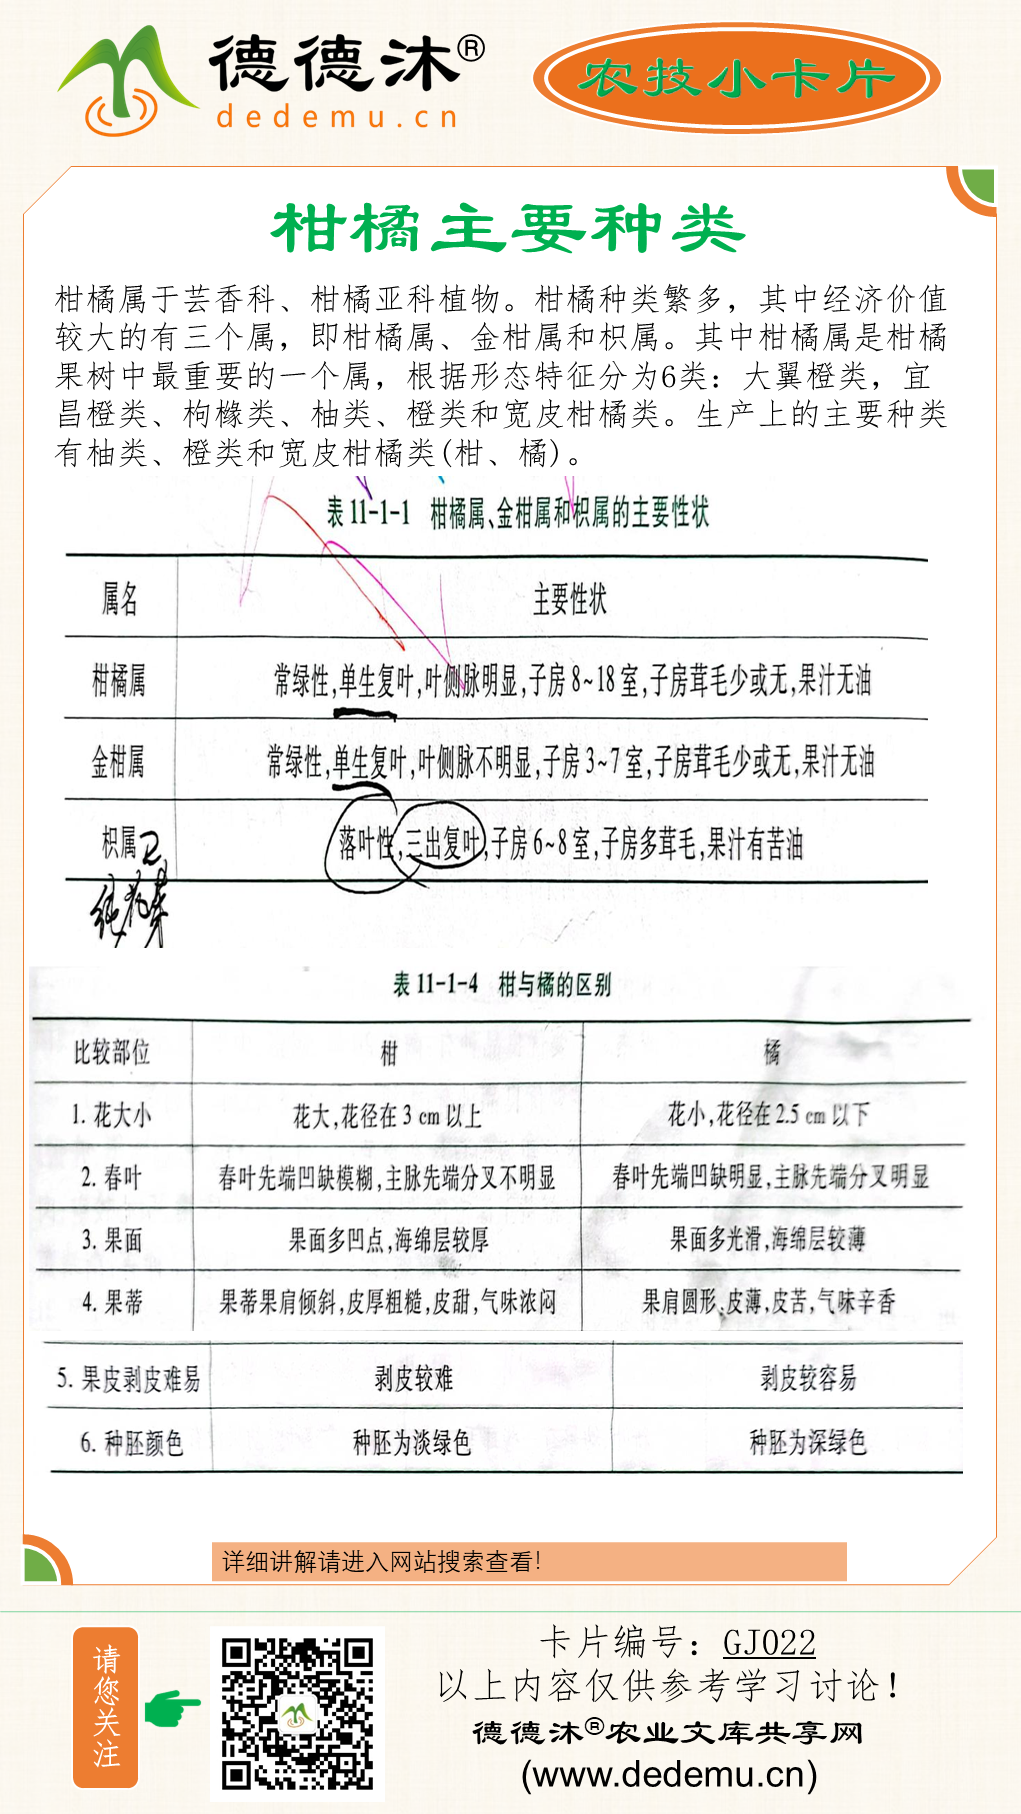 德德沐®
dedemu.cn
农技小卡片
柑橘主要种类
柑橘属于芸香科、柑橘亚科植物。柑橘种类繁多，其中经济价值
较大的有三个属，即柑橘属、金柑属和枳属。其中柑橘属是柑橘
果树中最重要的一个属，根据形态特征分为6类：大翼橙类，宜
昌橙类、枸橼类、柚类、橙类和宽皮柑橘类。生产上的主要种类
有柚类、橙类和宽皮柑橘类(柑、橘)。
表 11-1-1 柑橘属、金柑属和枳属的主要性状
属名 主要性状
柑橘属 常绿性,单生复叶,叶侧脉明显,子房 8~18 室,子房茸毛少或无,果汁无油
金柑属 常绿性,单生复叶,叶侧脉不明显,子房 3~7 室,子房茸毛少或无,果汁无油
枳属 落叶性,三出复叶,子房 6~8 室,子房多茸毛,果汁有苦油
纯花芽
表 11-1-4 柑与橘的区别
比较部位 柑 橘
1. 花大小 花大,花径在 3 cm 以上 花小,花径在 2.5 cm 以下
2. 春叶 春叶先端凹缺模糊,主脉先端分叉不明显 春叶先端凹缺明显,主脉先端分叉明显
3. 果面 果面多凹点,海绵层较厚 果面多光滑,海绵层较薄
4. 果蒂 果蒂果肩倾斜,皮厚粗糙,皮甜,气味浓闷 果肩圆形,皮薄,皮苦,气味辛香
5. 果皮剥皮难易 剥皮较难 剥皮较容易
6. 种胚颜色 种胚为淡绿色 种胚为深绿色
详细讲解请进入网站搜索查看！
请您关注
卡片编号：GJ022
以上内容仅供参考学习讨论！
德德沐®农业文库共享网
(www.dedemu.cn)